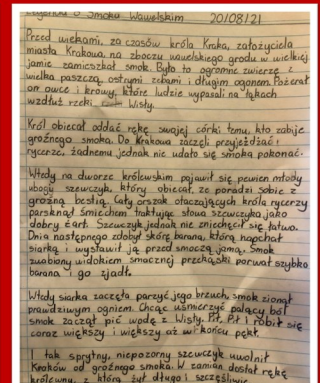 Legenda o Smoku Wawelskim 20/08/21
Przed wiekami, za czasów króla Kraka, założyciela
miasta Krakowa, na zboczu wawelskiego grodu w wielkiej
jamie zamieszkał smok. Było to ogromne zwierzę z
wielką paszczą, ostrymi zębami i długim ogonem. Pożerał
on owce i krowy, które ludzie wypasali na łąkach
wzdłuż rzeki Wisły.
Król obiecał oddać rękę swojej córki temu, kto zabije
groźnego smoka. Do Krakowa zaczęli przyjeżdżać
rycerze, żadnemu jednak nie udało się smoka pokonać.
Wtedy na dworze królewskim pojawił się pewien młody
ubogi szewczyk, który obiecał, że poradzi sobie z
groźną bestią. Cały orszak otaczających króla rycerzy
parsknął śmiechem traktując słowa szewczyka jako
dobry żart. Szewczyk jednak nie zniechęcił się łatwo.
Dnia następnego zdobył skórę barana, którą napchał
siarką i wystawił ją przed smoczą jamą. Smok
zwabiony widokiem smacznej przekąski porwał szybko
barana i go zjadł.
Wtedy siarka zaczęła parzyć jego brzuch, smok zionął
prawdziwym ogniem. Chcąc uśmierzyć palący ból
smok zaczął pić wodę z Wisły. Pił, Pił i robił się
coraz większy i większy aż w końcu pękł.
I tak sprytny, niepozorny szewczyk uwolnił
Kraków od groźnego smoka. W zamian dostał rękę
królewny, z którą żył długo i szczęśliwie